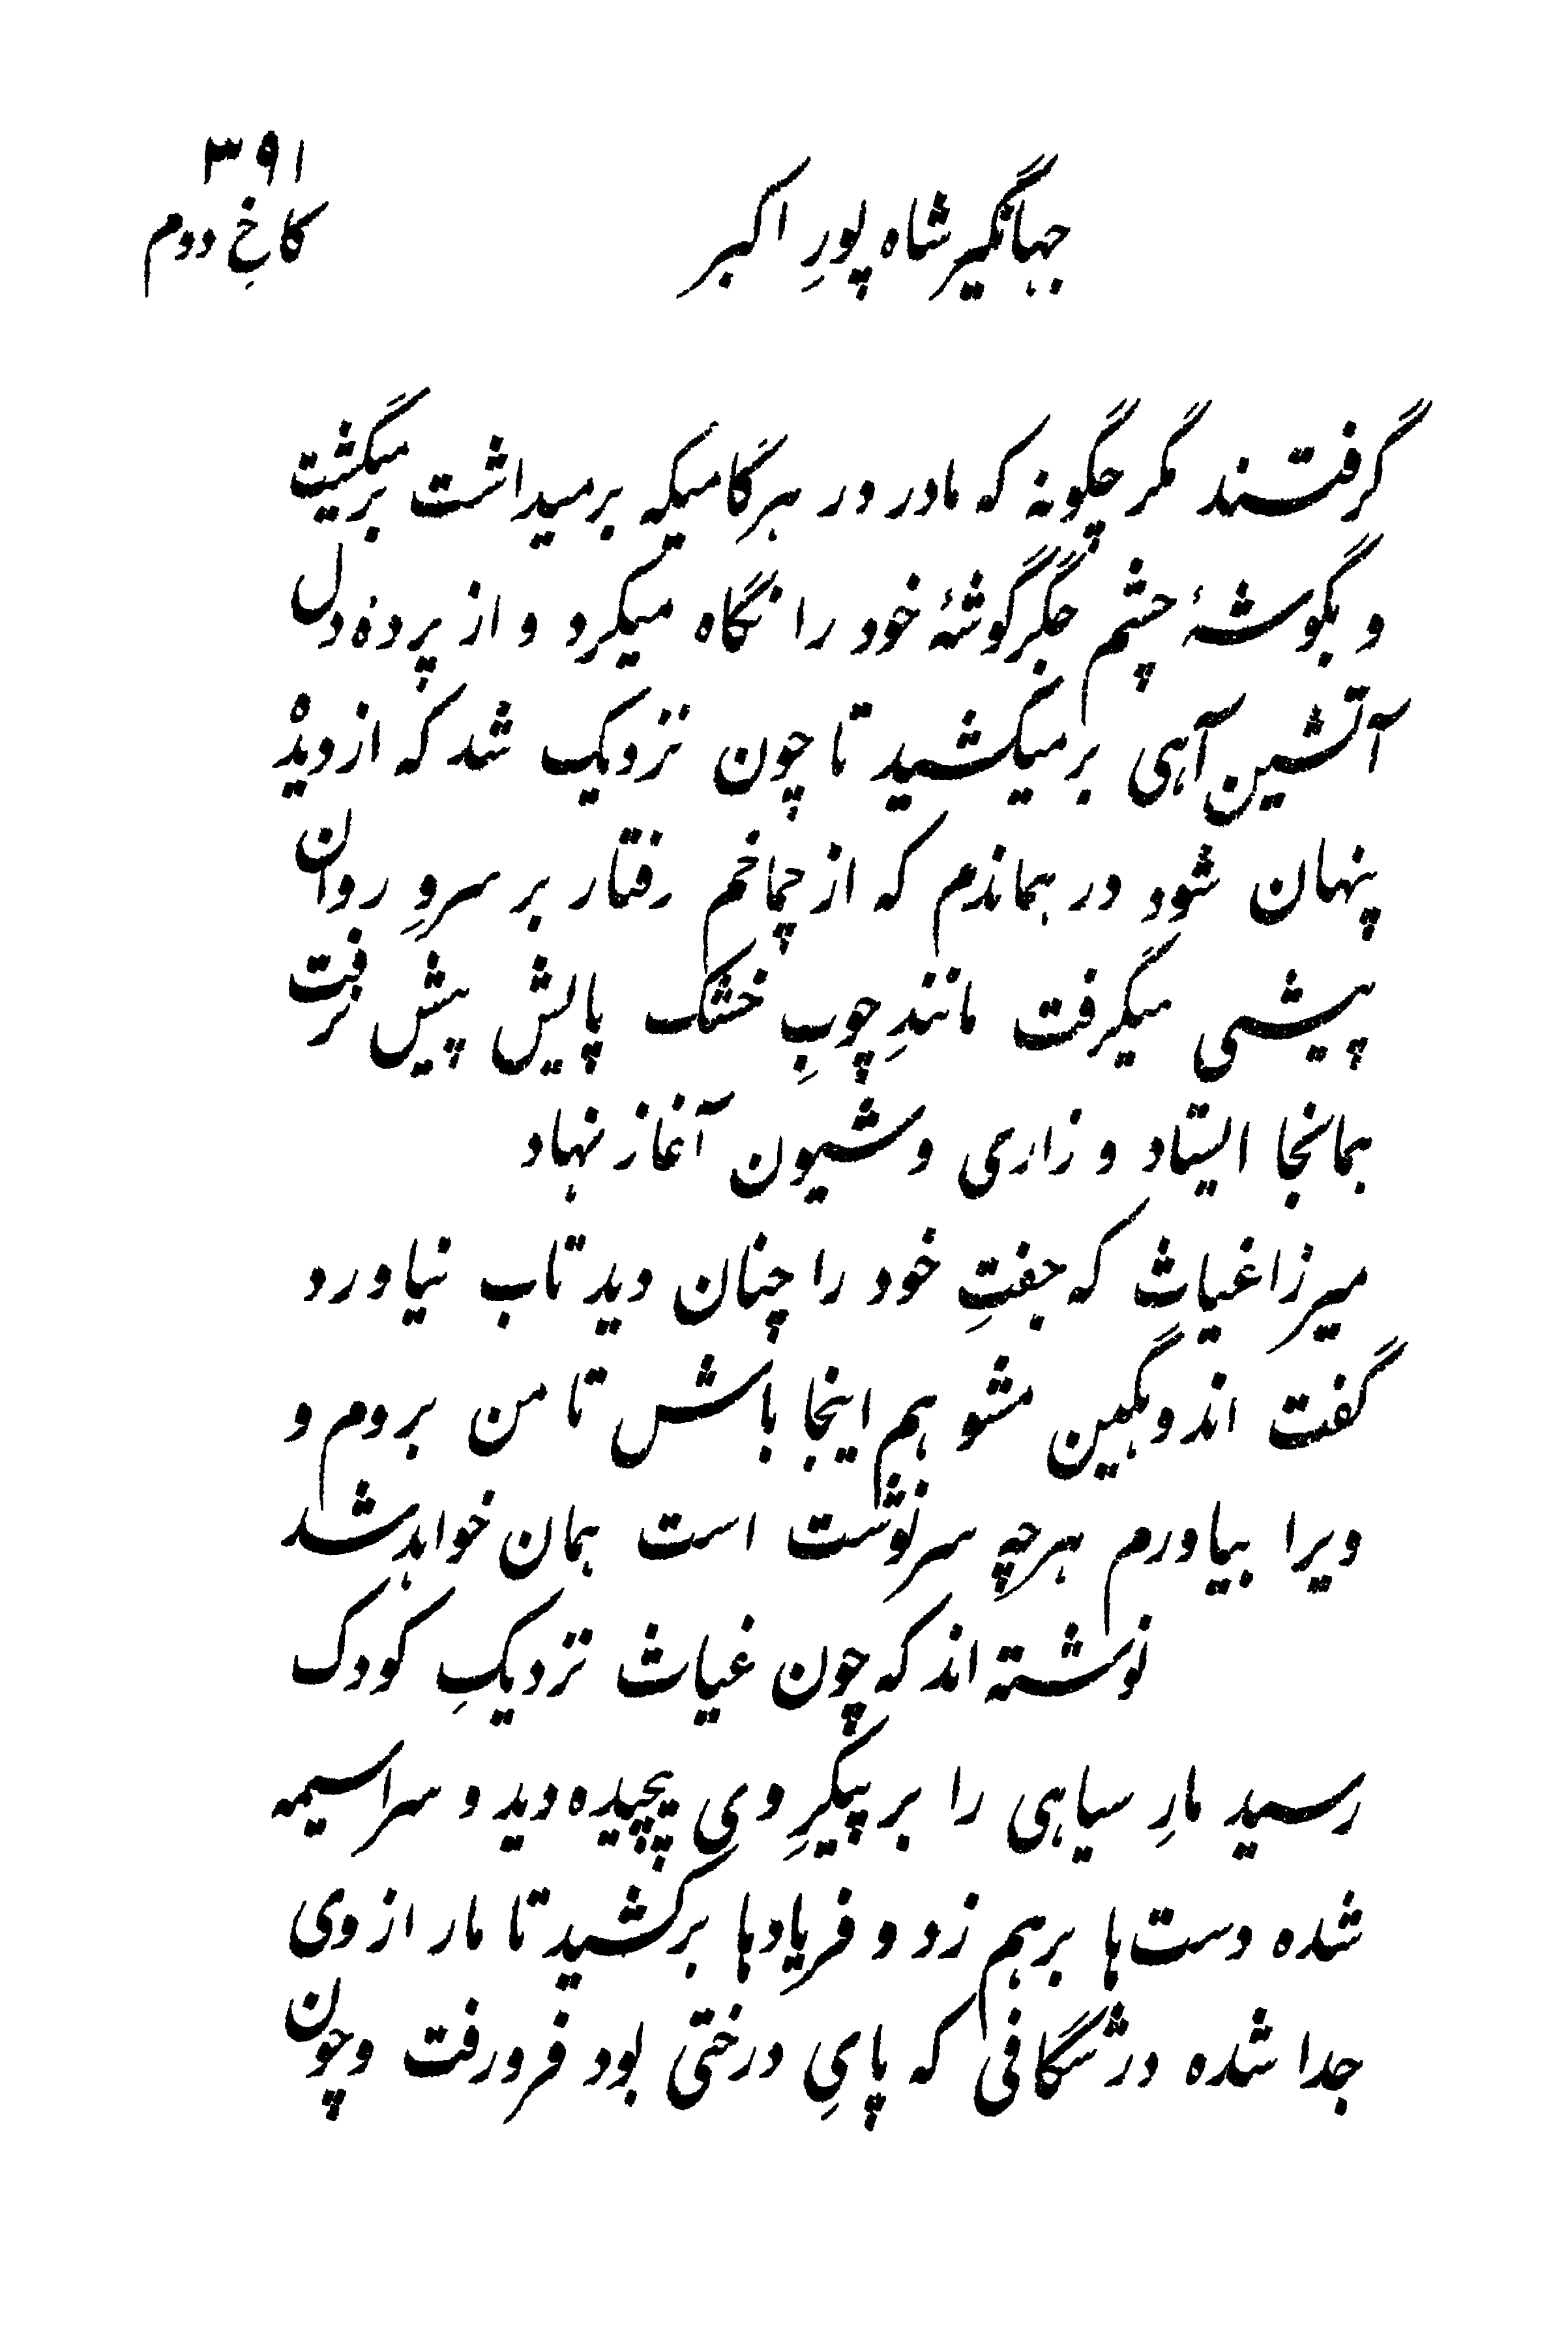 ۳۹۱
جهانگیر شاه پورِ اکبر
کاخِ دوم
گرفتند مگر چگونه که مادر در هر گامیکه برمیداشت برمیگشت
و بگوشهٔ چشم جگرگوشهٔ خود را نگاه میکرد و از پرده دل
آتشین آهی برمیکشید تا چون نزدیک شد که از دیده
پنهان شود در هماندم که از چماخم رفتار بر سروِ روان
پیشی میگرفت مانندِ چوبِ خشک پایش پیش نرفت
همانجا ایستاد و زاری و شیون آغاز نهاد
میرزا غیاث که جفتِ خود را چنان دید تاب نیاورد
گفت اندوهگین مشو هم اینجا باش تا من بروم و
ویرا بیاورم هرچه سرنوشت است همان خواهد شد
نوشته اند که چون غیاث نزدیکِ کودک
رسید مارِ سیاهی را بر پیکرِ وی پیچیده دید و سراسیمه
شده دست‌ها برهم زد و فریادها برکشید تا مار از وی
جدا شده در شگافی که پایِ درختی بود فرورفت و چون